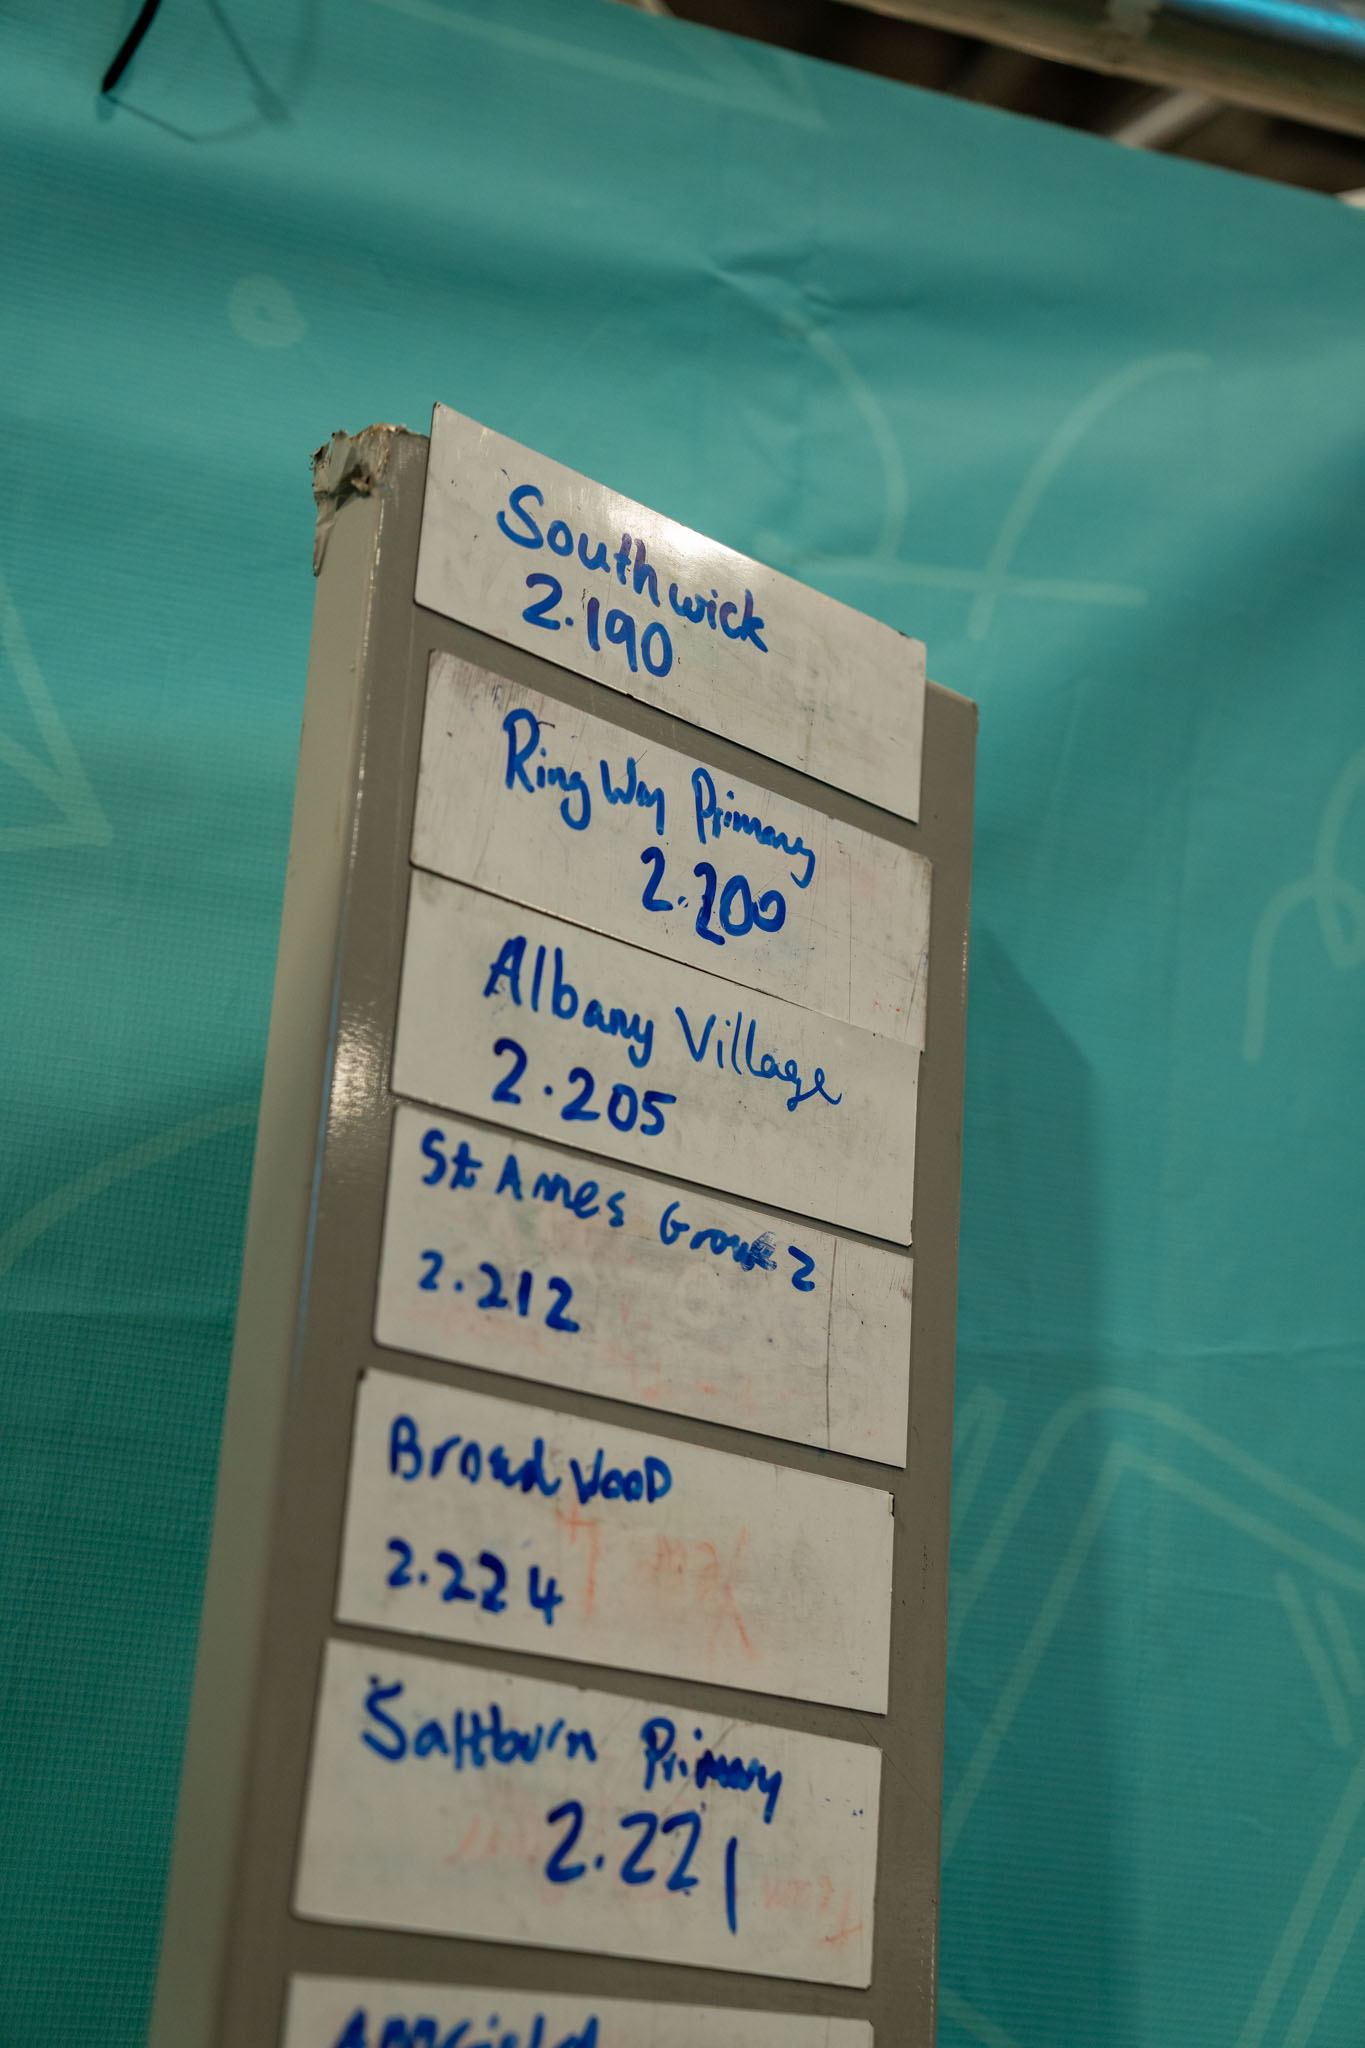 Southwick
2.190
Ring Way Primary
2.200
Albany Village
2.205
St Annes Group 2
2.212
Broad WooD
2.224
Saltburn Primary
2.221